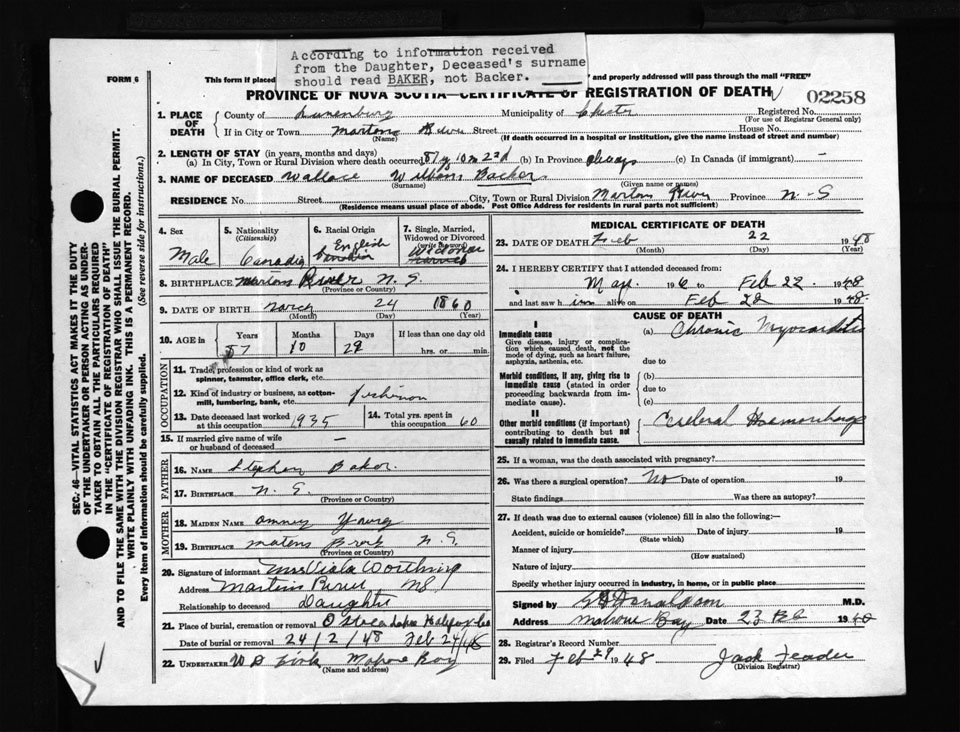 According to information received
from the Daughter, Deceased's surname
should read BAKER, not Backer.
FORM 6
This form if placed and properly addressed will pass through the mail "FREE"
PROVINCE OF NOVA SCOTIA—CERTIFICATE OF REGISTRATION OF DEATH
02258
1. PLACE OF DEATH
County of Lunenburg Municipality of Chester Registered No.
(For use of Registrar General only)
If in City or Town Martins River Street House No.
(Name) (If death occurred in a hospital or institution, give the name instead of street and number)
2. LENGTH OF STAY (in years, months and days)
(a) In City, Town or Rural Division where death occurred 87y 10m 22d (b) In Province always (c) In Canada (if immigrant) —
3. NAME OF DECEASED Wallace William Backer
(Surname) (Given name or names)
RESIDENCE No. Street City, Town or Rural Division Martins River Province N-S
(Residence means usual place of abode. Post Office Address for residents in rural parts not sufficient)
4. Sex
Male
5. Nationality
(Citizenship)
Canadian
6. Racial Origin
English
7. Single, Married,
Widowed or Divorced
(write the word)
Widower
8. BIRTHPLACE Martins N. S.
(Province or Country)
9. DATE OF BIRTH March 24 1860
(Month) (Day) (Year)
10. AGE in Years Months Days If less than one day old
87 10 29 hrs. or min.
OCCUPATION
11. Trade, profession or kind of work as
spinner, teamster, office clerk, etc.
12. Kind of industry or business, as cotton-
mill, lumbering, bank, etc. Fisherman
13. Date deceased last worked
at this occupation 1935
14. Total yrs. spent in
this occupation 60
15. If married give name of wife
or husband of deceased —
FATHER
16. NAME Stephen Baker
17. BIRTHPLACE N. S.
(Province or Country)
MOTHER
18. MAIDEN NAME Young
19. BIRTHPLACE N. S.
(Province or Country)
20. Signature of informant Mrs Viola
Address Martins River NS
Relationship to deceased Daughter
21. Place of burial, cremation or removal
Date of burial or removal 24/2/48 Feb 24/48
22. UNDERTAKER Mahone Bay
(Name and address)
MEDICAL CERTIFICATE OF DEATH
23. DATE OF DEATH Feb 22 1948
(Month) (Day) (Year)
24. I HEREBY CERTIFY that I attended deceased from:
to Feb 22 1948
and last saw him alive on Feb 22 1948
CAUSE OF DEATH
I
Immediate cause
Give disease, injury or complica-
tion which caused death, not the
mode of dying, such as heart failure,
asphyxia, asthenia, etc.
(a) Chronic Myocarditis
due to
Morbid conditions, if any, giving rise to
immediate cause (stated in order
proceeding backwards from im-
mediate cause).
(b)
due to
(c)
II
Other morbid conditions (if important)
contributing to death but not
causally related to immediate cause.
Cerebral Haemorrhage
25. If a woman, was the death associated with pregnancy?
26. Was there a surgical operation? No Date of operation 19
State findings Was there an autopsy?
27. If death was due to external causes (violence) fill in also the following:—
Accident, suicide or homicide? Date of injury 19
(State which)
Manner of injury
(How sustained)
Nature of injury
Specify whether injury occurred in industry, in home, or in public place
Signed by Donaldson M.D.
Address Mahone Bay Date 23
28. Registrar's Record Number
29. Filed Feb 29 1948 Jack
(Division Registrar)
SEC. 46—VITAL STATISTICS ACT MAKES IT THE DUTY
OF THE UNDERTAKER OR PERSON ACTING AS UNDER-
TAKER TO OBTAIN ALL THE PARTICULARS REQUIRED
IN THE "CERTIFICATE OF REGISTRATION OF DEATH"
AND TO FILE THE SAME WITH THE DIVISION REGISTRAR WHO SHALL ISSUE THE BURIAL PERMIT.
WRITE PLAINLY WITH UNFADING INK. THIS IS A PERMANENT RECORD.
Every item of information should be carefully supplied. (See reverse side for instructions.)